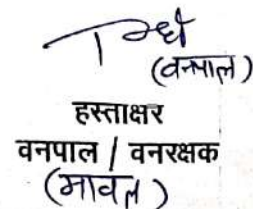 (वनपाल)
हस्ताक्षर
वनपाल / वनरक्षक
(मावल)